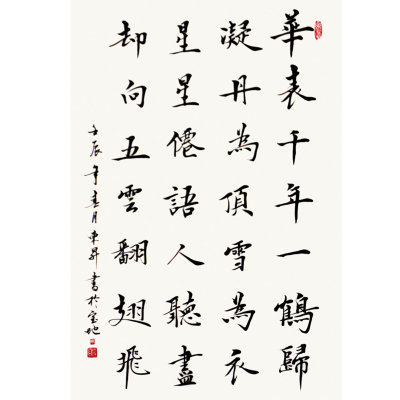 華表千年一鶴歸
凝丹為頂雪為衣
星星僊語人聽盡
却向五雲翻翅飛
壬辰年春月東昇書於宝地